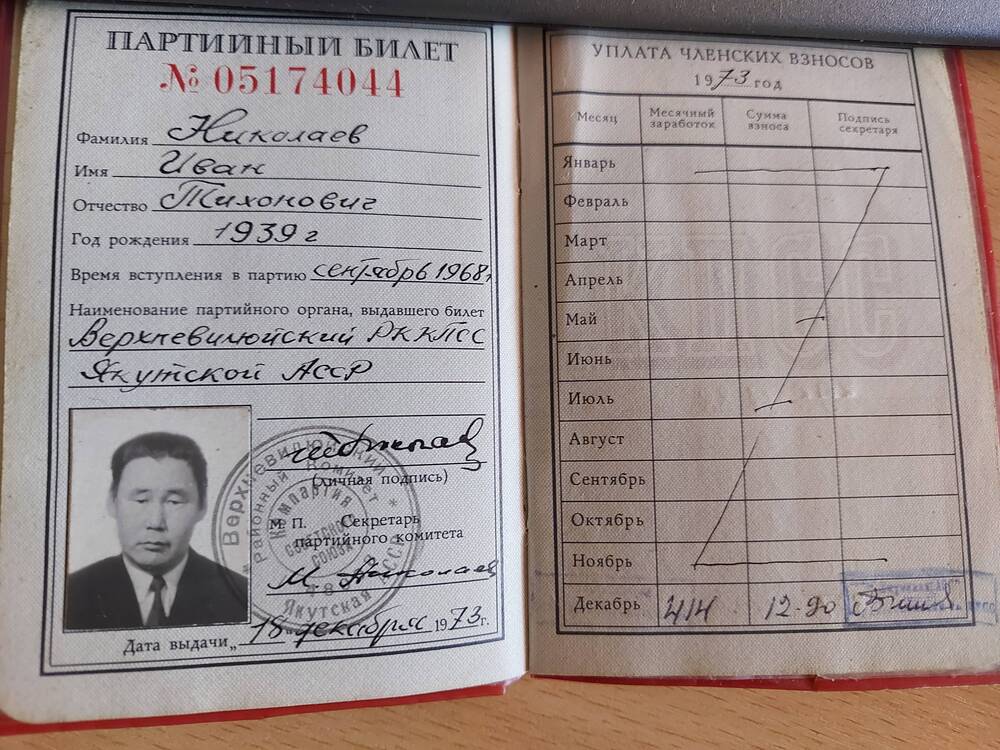 ПАРТИЙНЫЙ БИЛЕТ
№ 05174044
Фамилия Николаев
Имя Иван
Отчество Тихонович
Год рождения 1939 г
Время вступления в партию сентябрь 1968г
Наименование партийного органа, выдавшего билет
Верхневилюйский РККПСС
Якутской АССР
(личная подпись)
М. П. Секретарь
партийного комитета
М. Николаев
Дата выдачи „18" декабря 1973 г.
Верхневилюйский
Районный Комитет
Компартия
Советского
Союза
Якутская АССР
УПЛАТА ЧЛЕНСКИХ ВЗНОСОВ
1973 год
Месяц Месячный заработок Сумма взноса Подпись секретаря
Январь
Февраль
Март
Апрель
Май
Июнь
Июль
Август
Сентябрь
Октябрь
Ноябрь
Декабрь 414 12-90